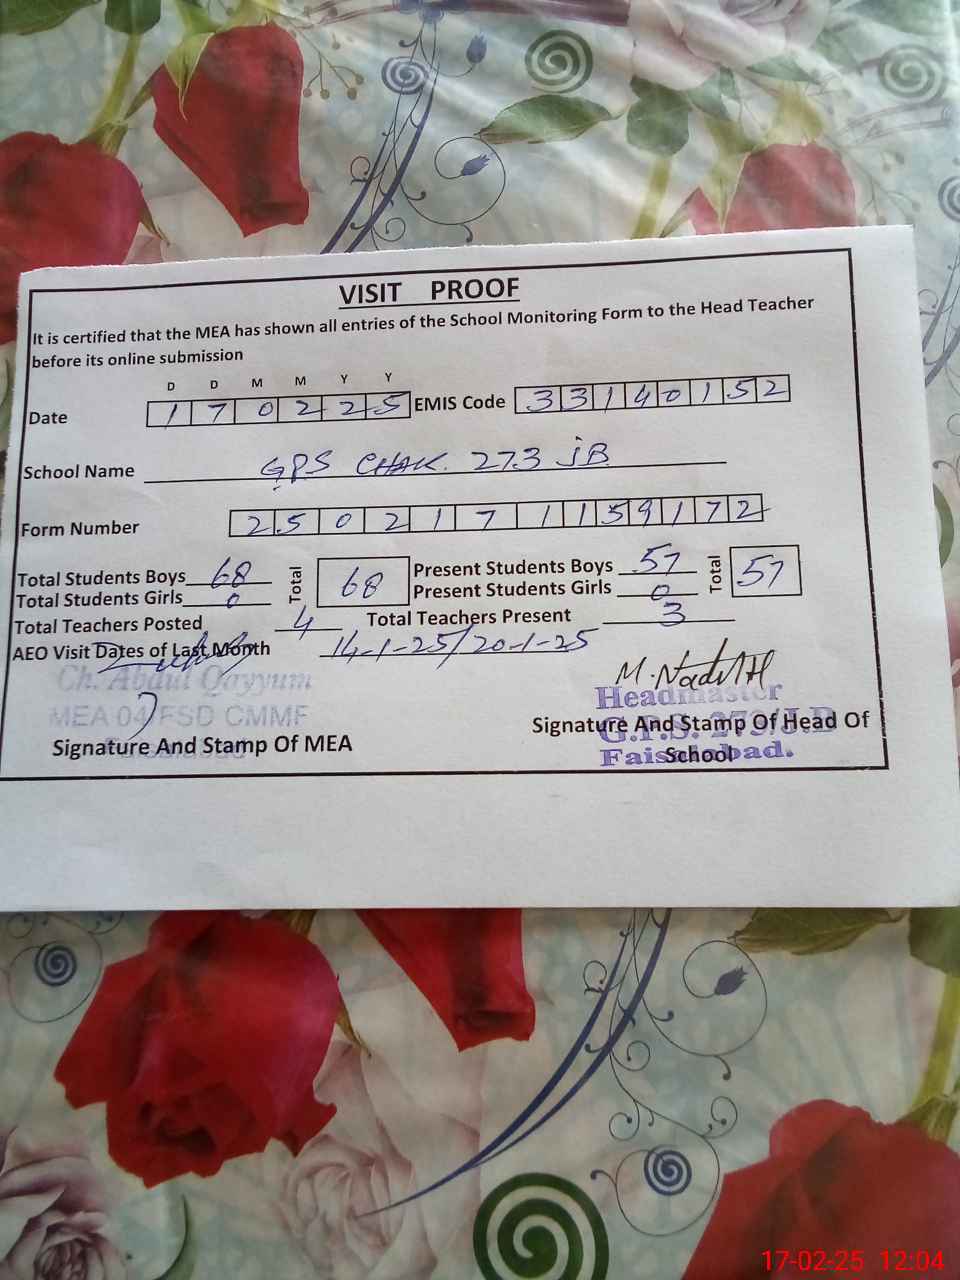 VISIT PROOF
It is certified that the MEA has shown all entries of the School Monitoring Form to the Head Teacher
before its online submission
D D M M Y Y
Date 1 7 0 2 2 5 EMIS Code 3 3 1 4 0 1 5 2
School Name GPS CHAK. 273 JB
Form Number 2 5 0 2 1 7 1 1 5 9 1 7 2
Total Students Boys 68 Total 68 Present Students Boys 57 Total 57
Total Students Girls 0 Present Students Girls 0
Total Teachers Posted 4 Total Teachers Present 3
AEO Visit Dates of Last Month 14-1-25/20-1-25
Ch. Abdul Qayyum
MEA 04 FSD CMMF
Signature And Stamp Of MEA
Headmaster
G.P.S. 273/J.B
Faisalabad.
Signature And Stamp Of Head Of
School
17-02-25 12:04